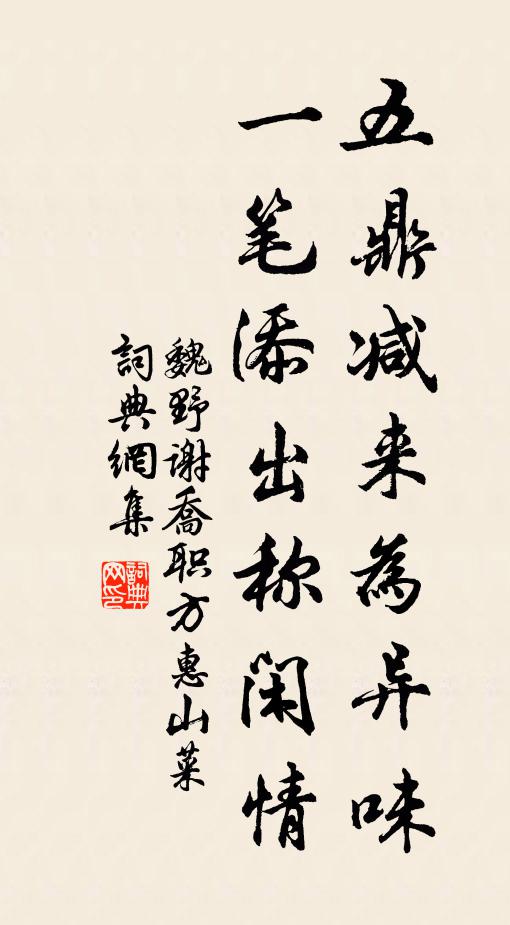 五鼎减来為异味
一笔添出称闲情
魏野谢喬职方惠山菜
詞典網集
詞典
网印